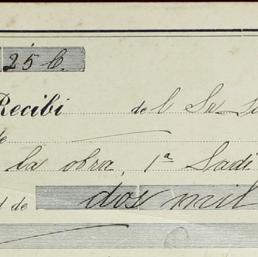 25 C.
Recibi del Sr.
de
la obra, 1ª Sadi
d de dos mil